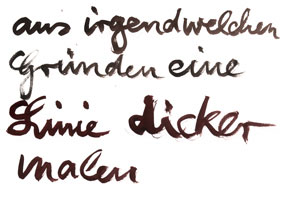 aus irgendwelchen
Gründen eine
Linie dicker
malen